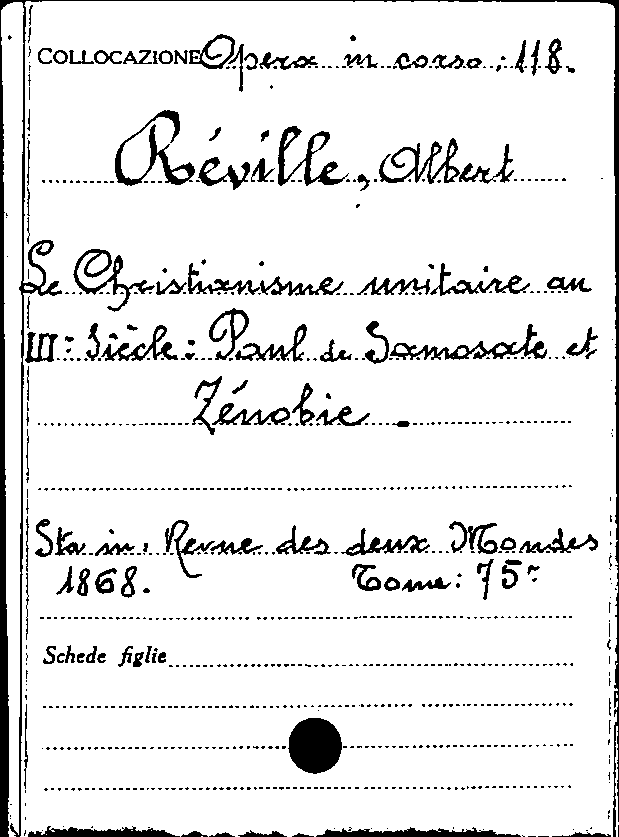 COLLOCAZIONE Opera in corso : 118.
Réville, Albert
Le Christianisme unitaire au
III- Siècle : Paul de Samosate et
Zénobie.
Sta in. Revue des deux Mondes
1868. Tome : 75-
Schede figlie